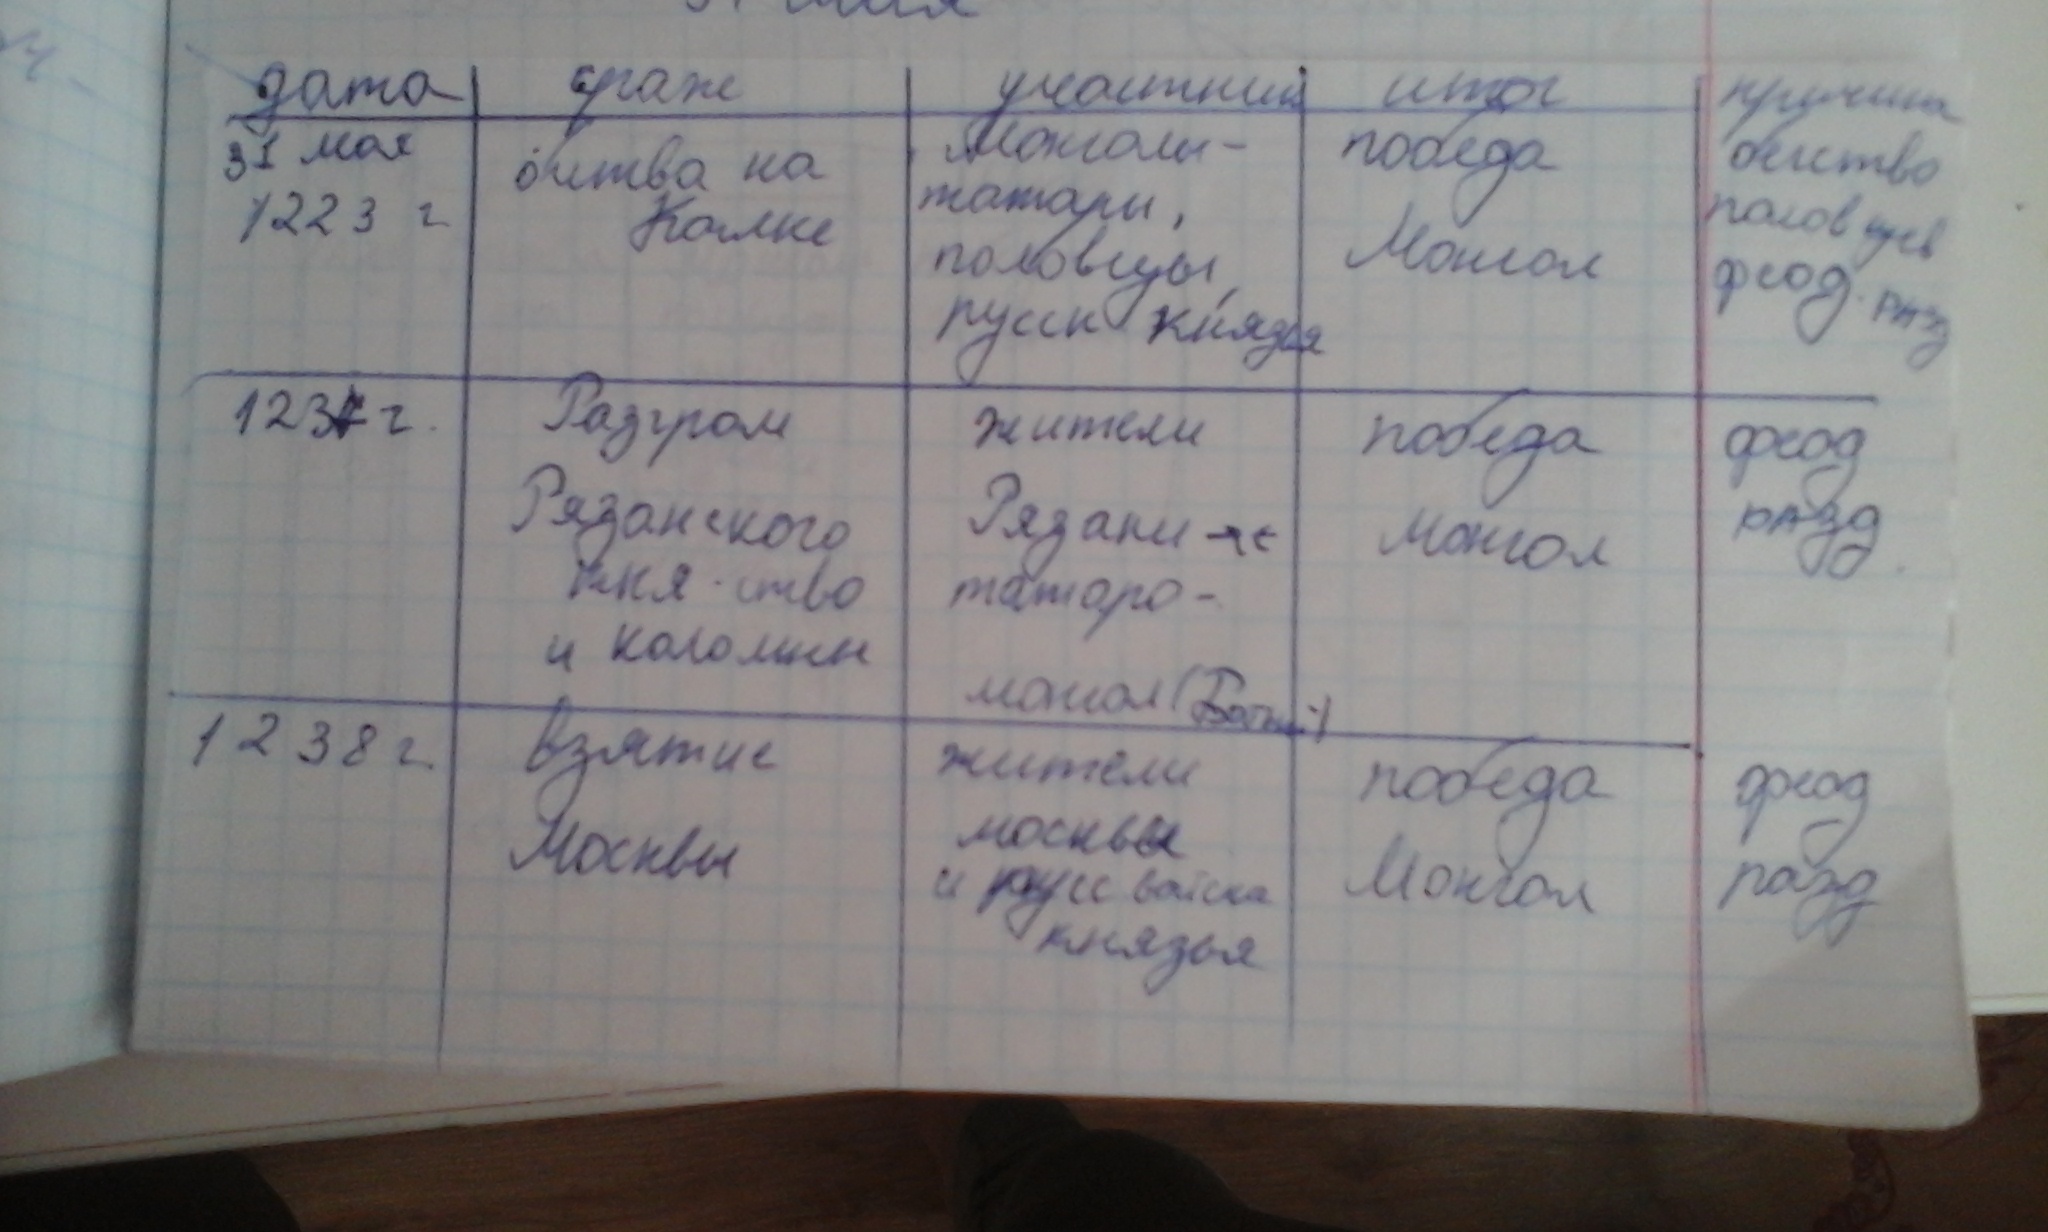 31 мая
дата сраж участники итог причина
31 мая
1223 г.
битва на
Калке
Монголы-
татары,
половцы,
русск князья
победа
Монгол
бегство
половцев
феод. разд
1237 г.
Разгром
Рязанского
кня-ство
и коломны
жители
Рязани
татаро-
монгол (Батый)
победа
монгол
феод
разд.
1238 г.
взятие
Москвы
жители
москвы
и русс войска
князья
победа
Монгол
феод
разд